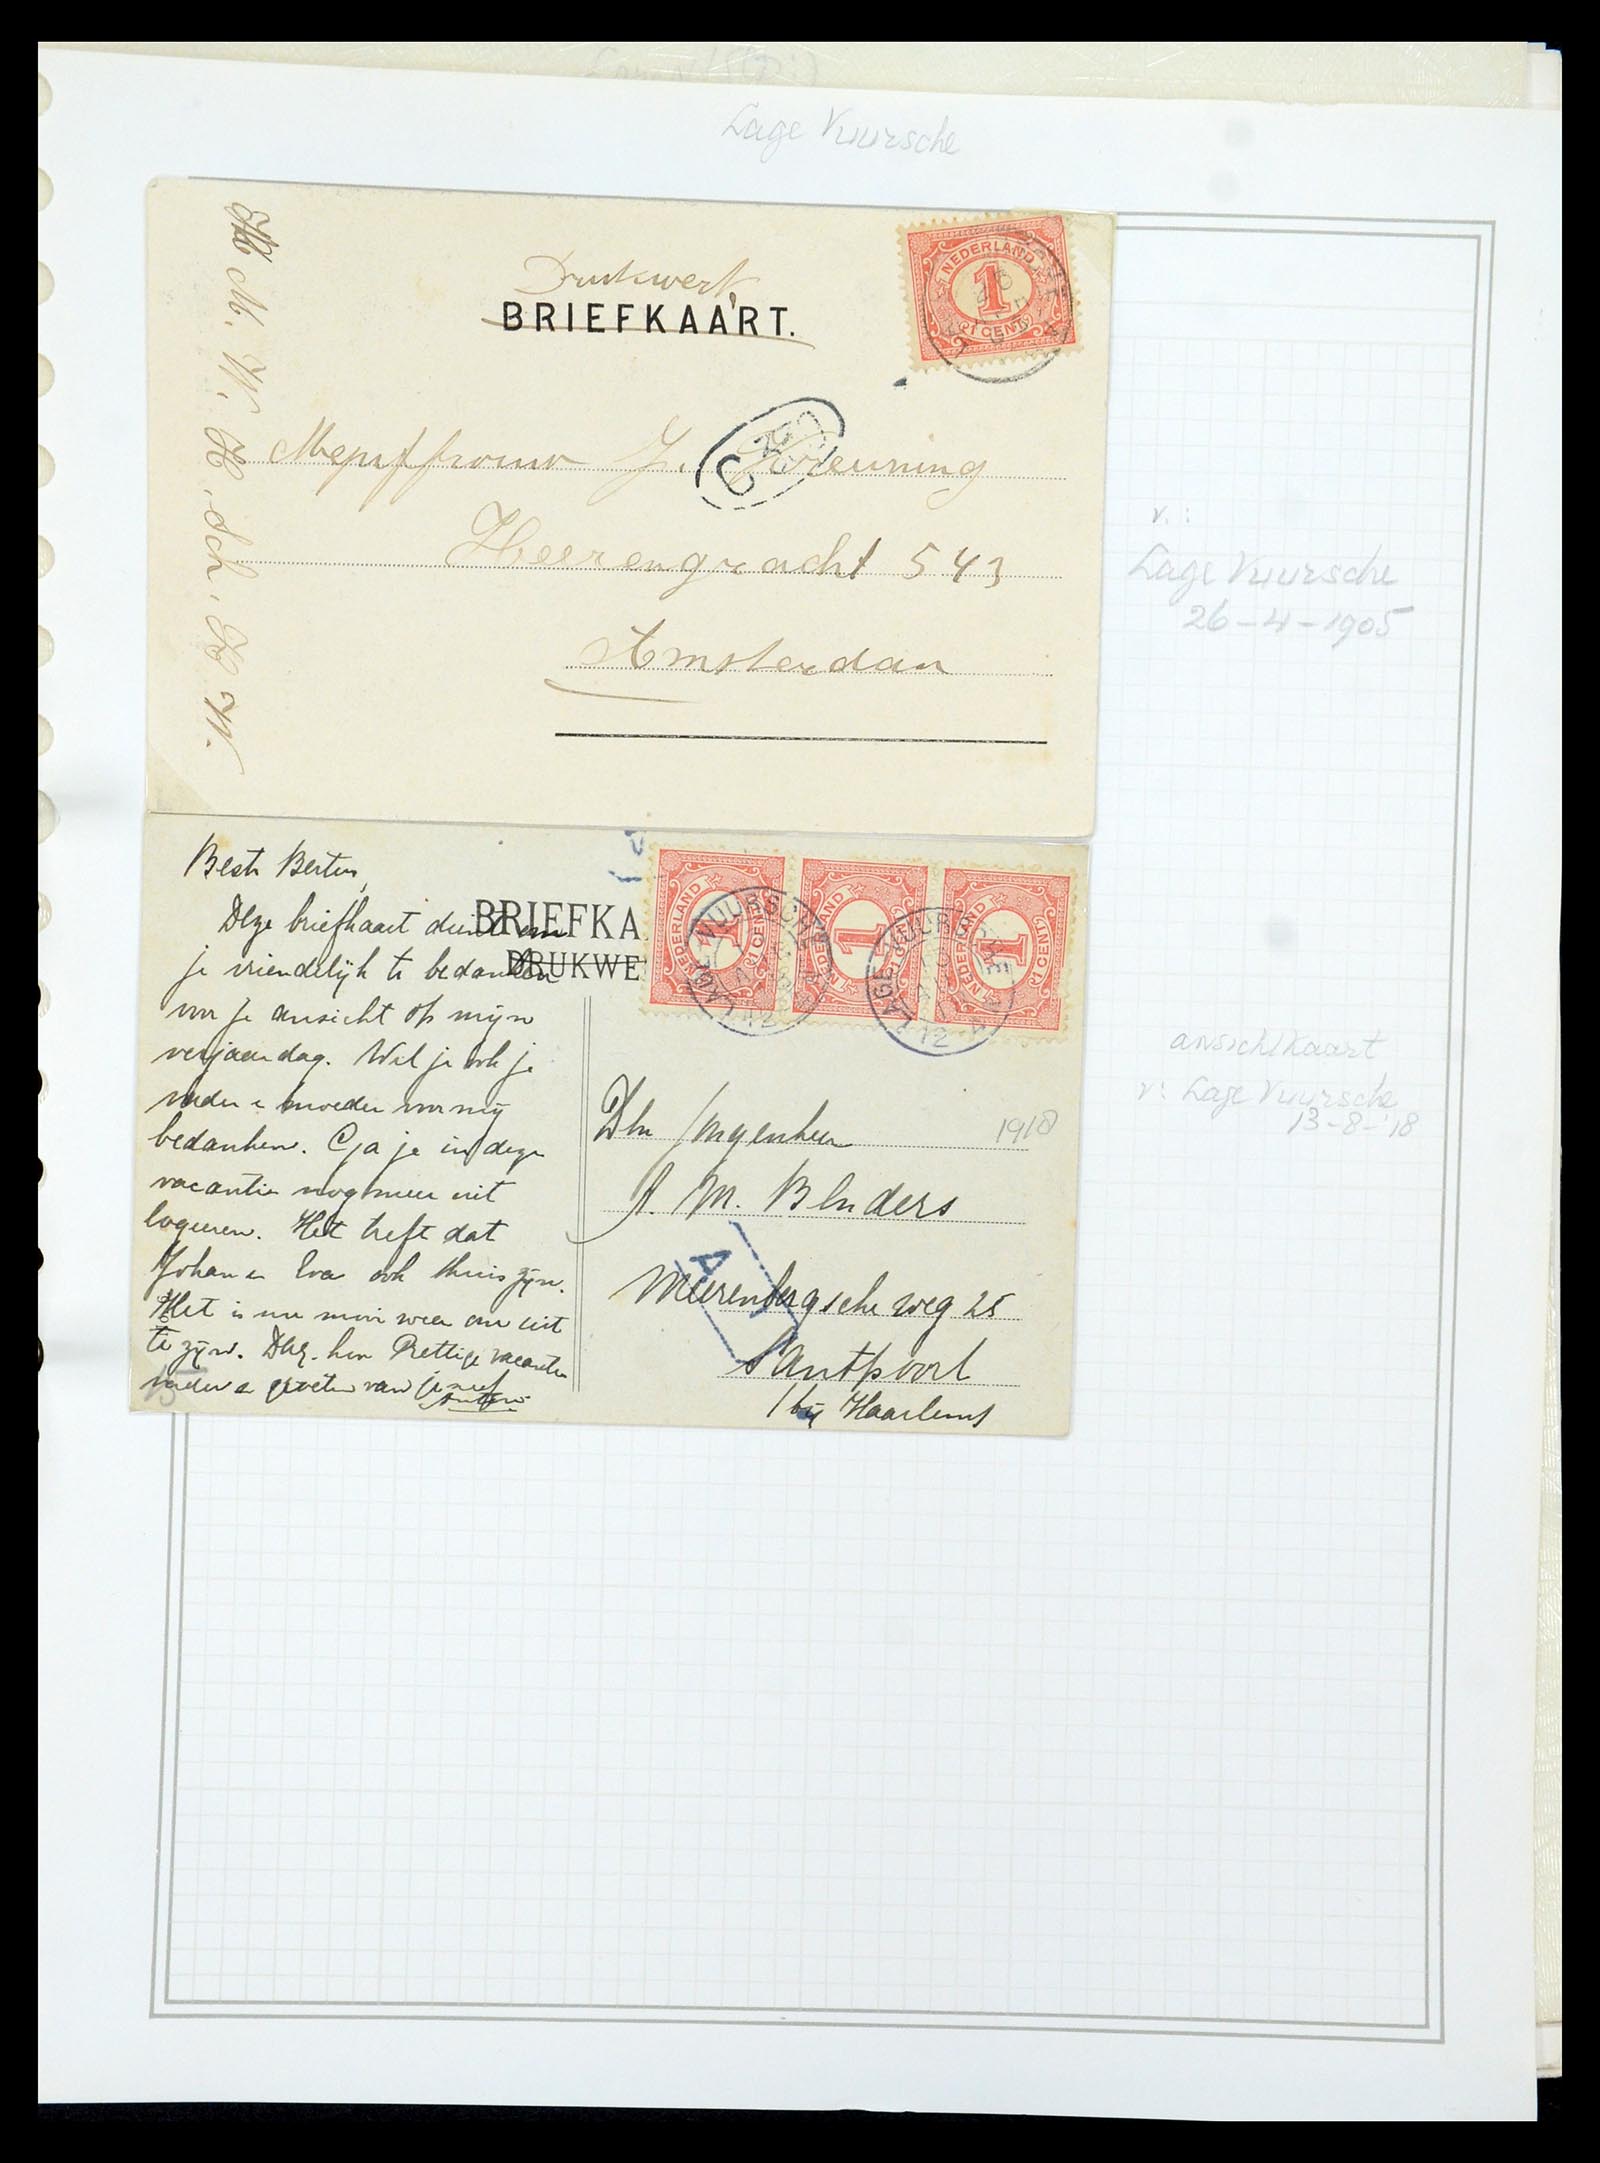 Lage Vuursche
Drukwerk
BRIEFKAART.
NEDERLAND
1
1 CENT
Mejuffrouw J. Kreuning
Heerengracht 543
Amsterdam
M. W. H. Sch. H W.
v.:
Lage Vuursche
26-4-1905
Beste Bertus,
Deze briefkaart dient om
je vriendelijk te bedanken
voor je ansicht op mijn
verjaardag. Wil je ook je
vader en moeder voor mij
bedanken. Ga je in deze
vacantie nog meer uit
logeeren. Het treft dat
Johan en Eva ook thuis zijn.
Het is nu mooi weer om uit
te zijn. Prettige vacantie
verder en groeten van je neef
Anton
BRIEFKA
DRUKWE
NEDERLAND 1 1 CENT
NEDERLAND 1 1 CENT
NEDERLAND 1 1 CENT
LAGE VUURSCHE
LAGE VUURSCHE
12
Jongenheer
1918
A. M. Blnders
Meerenbergsche weg 25
Santpoort
bij Haarlem
A
ansichtkaart
v: Lage Vuursche
13-8-'18